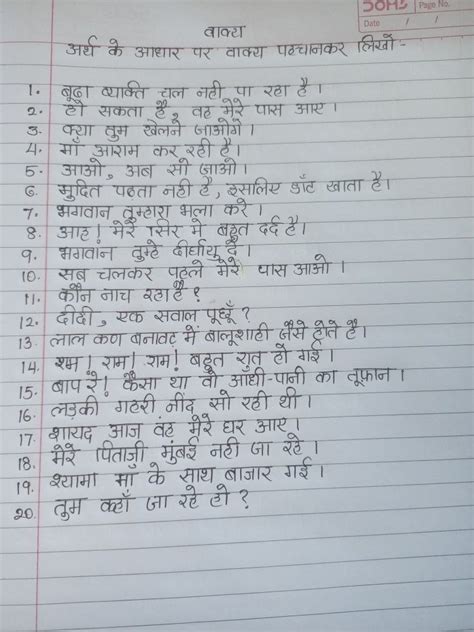 DOMS
Page No.
Date / /
वाक्य
अर्थ के आधार पर वाक्य पहचानकर लिखो -
1. बूढ़ा व्यक्ति चल नही पा रहा है।
2. हो सकता है, वह मेरे पास आए।
3. क्या तुम खेलने जाओगे।
4. माँ आराम कर रही है।
5. आओ, अब सो जाओ।
6. मुदित पढ़ता नही है, इसलिए डाँट खाता है।
7. भगवान तुम्हारा भला करे।
8. आह! मेरे सिर मे बहुत दर्द है।
9. भगवान तुम्हे दीर्घायु दे।
10. सब चलकर पहले मेरे पास आओ।
11. कौन नाच रहा है?
12. दीदी, एक सवाल पूछूँ?
13. लाल कण बनावट में बालूशाही जैसे होते है।
14. राम! राम! राम! बहुत रात हो गई।
15. बाप रे! कैसा था वो आंधी-पानी का तूफान।
16. लड़की गहरी नींद सो रही थी।
17. शायद आज वह मेरे घर आए।
18. मेरे पिताजी मुंबई नही जा रहे।
19. श्यामा माँ के साथ बाजार गई।
20. तुम कहाँ जा रहे हो?